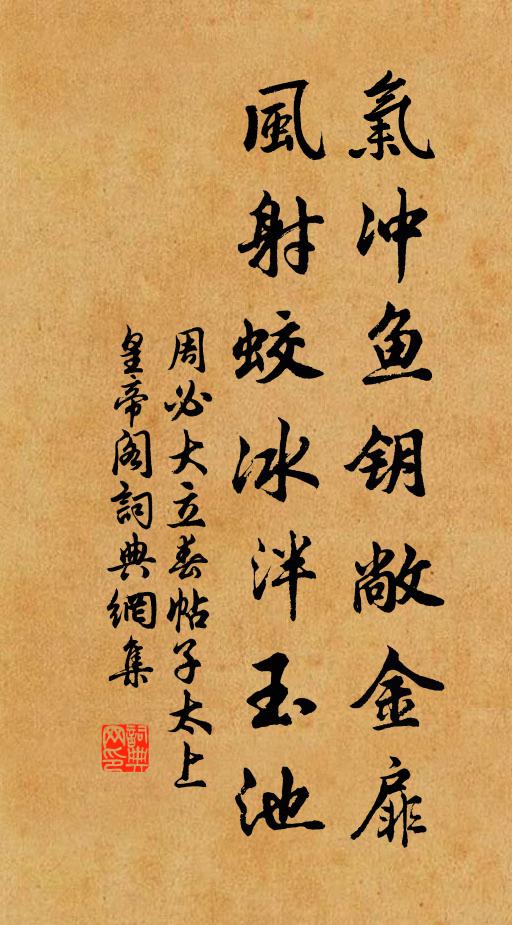 氣冲鱼钥敞金扉
風射蛟冰泮玉池
周必大立春帖子太上
皇帝阁詞典網集
詞典网印